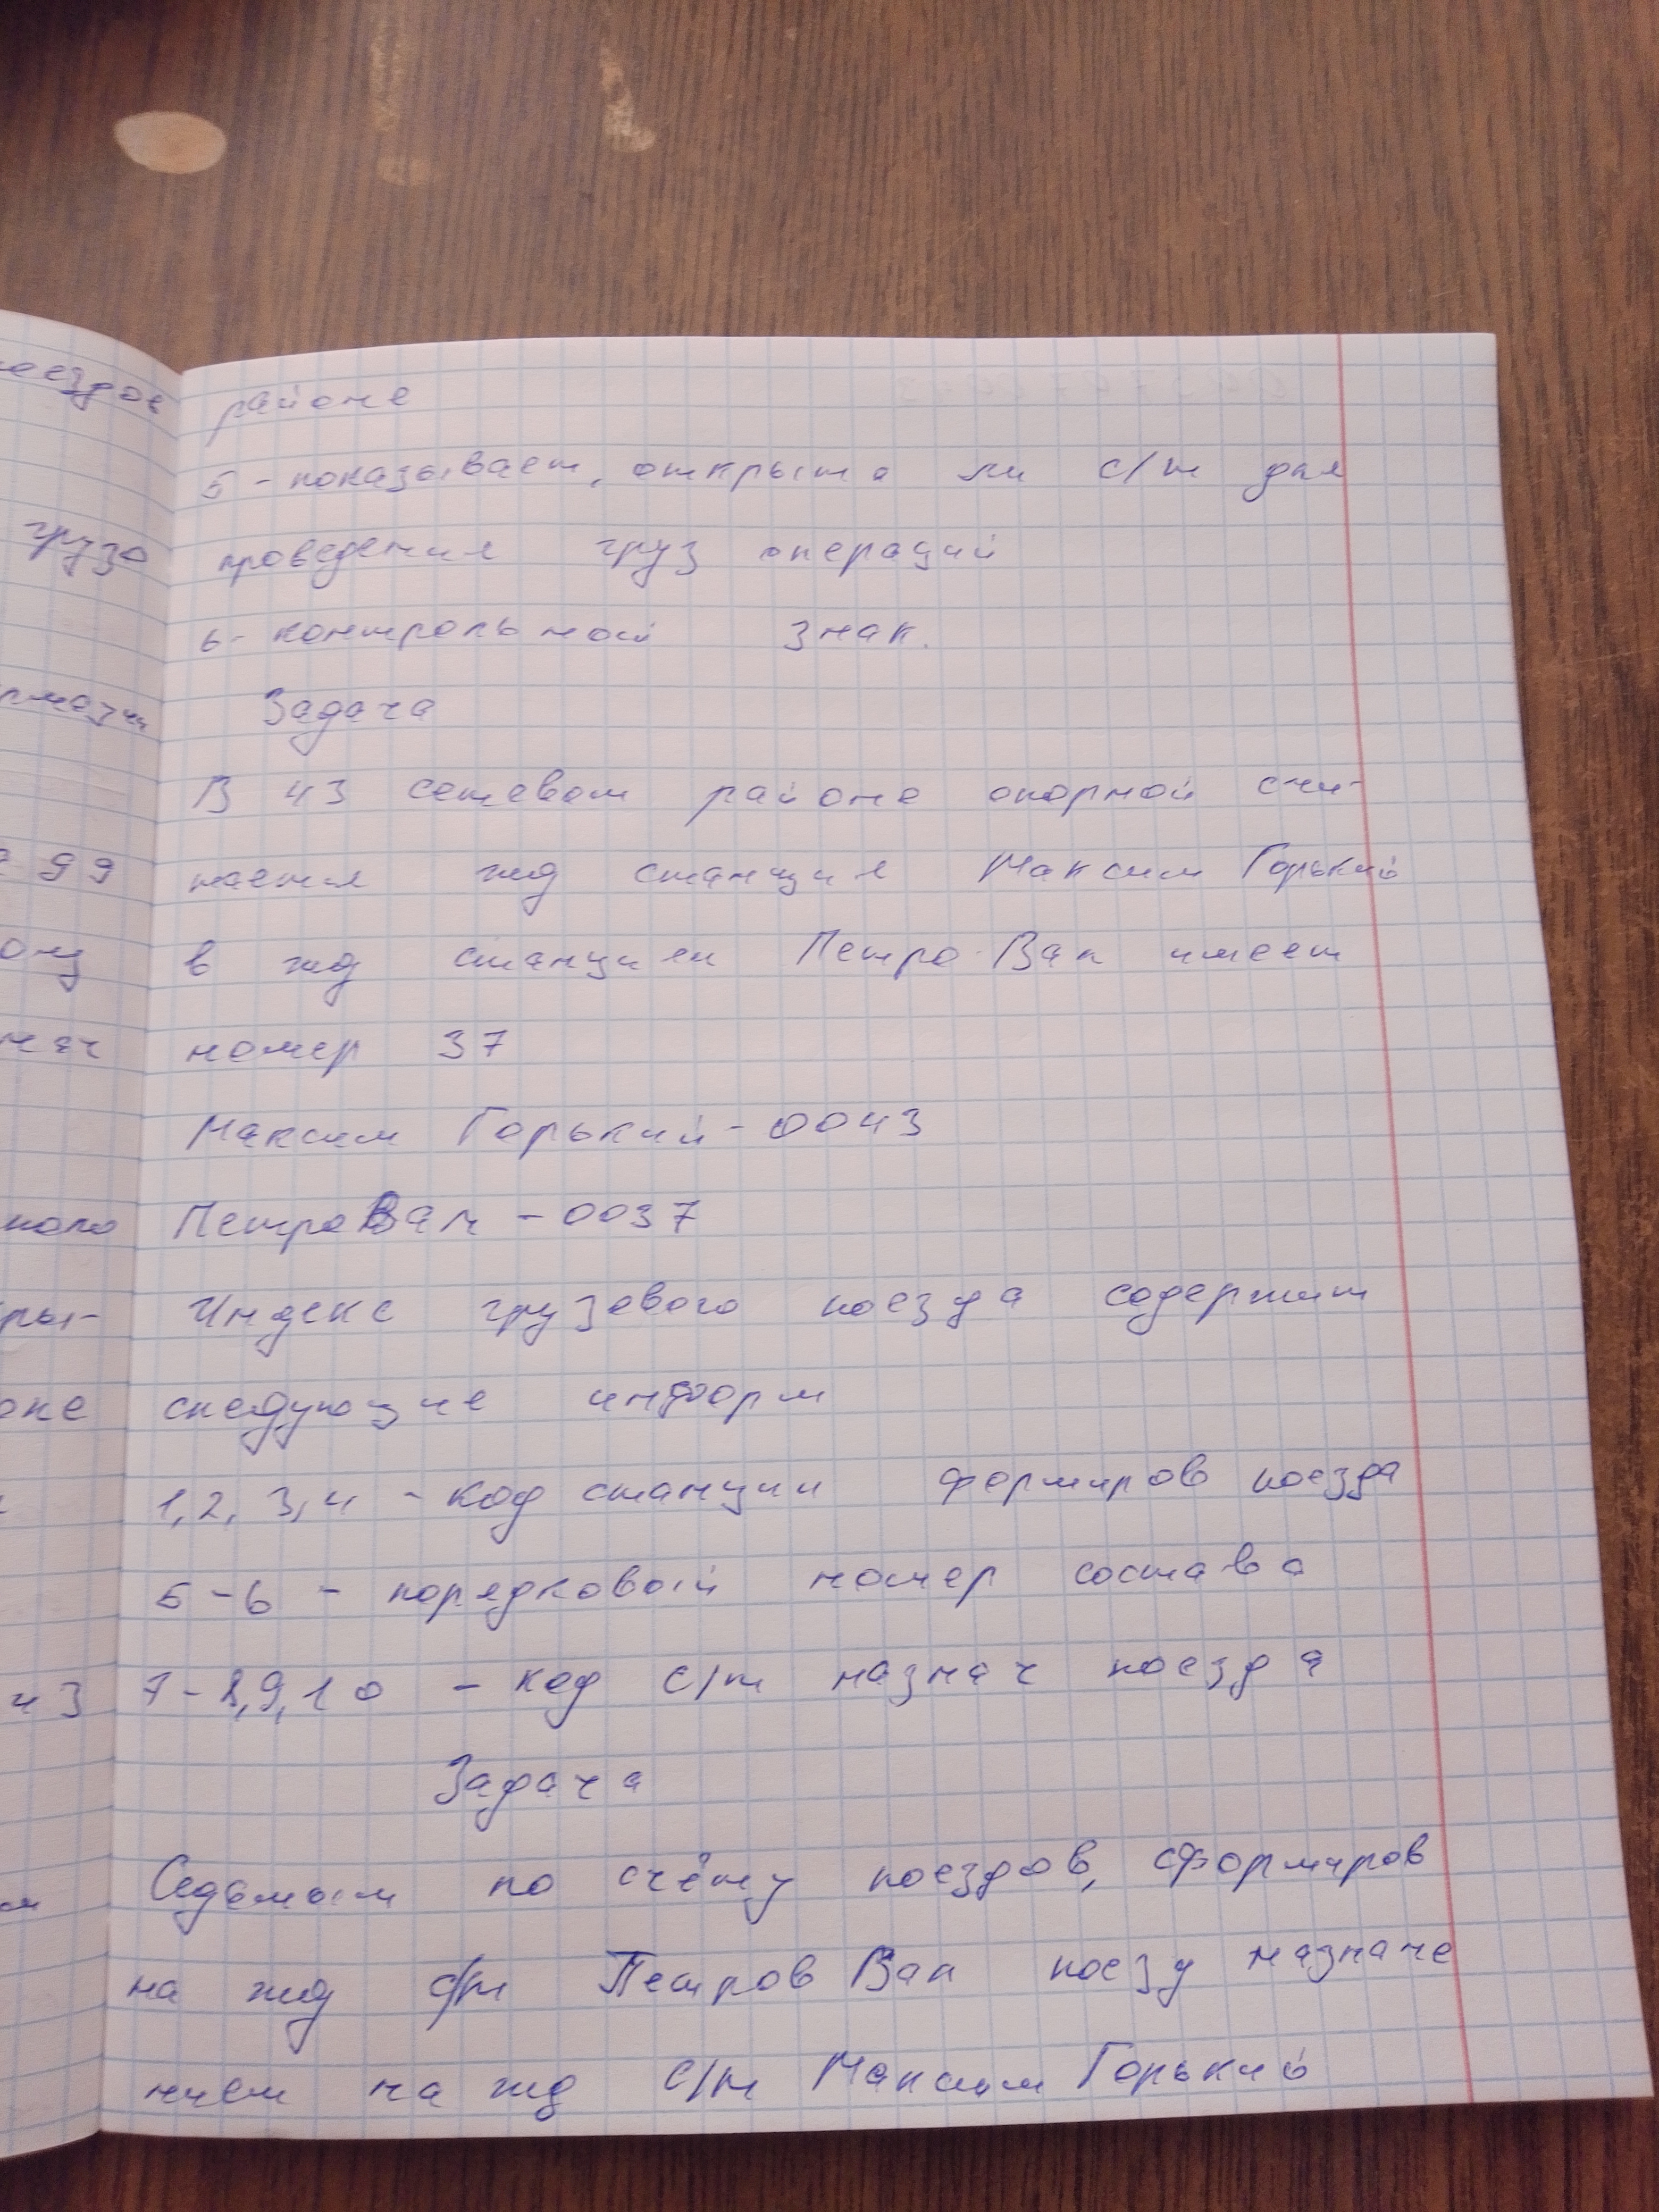 районе
5 - показывает, открыта ли с/т для
проведения груз операций
6 - контрольный знак.
Задача
В 43 сетевом районе опорной счи-
тается жд станция Максим Горький
в жд станции Петро Вал имеет
номер 37
Максим Горький - 0043
Петро Вал - 0037
Индекс грузового поезда содержит
следующие информ
1, 2, 3, 4 - код станции формиров поезда
5 - 6 - порядковый номер состава
7 - 8, 9, 10 - код с/т назнач поезда
Задача
Седьмым по счёту поездов, сформиров
на жд с/т Петров Вал поезд назначе
нием на жд с/т Максим Горький
поездов
грузо
99
ону
кры-
43